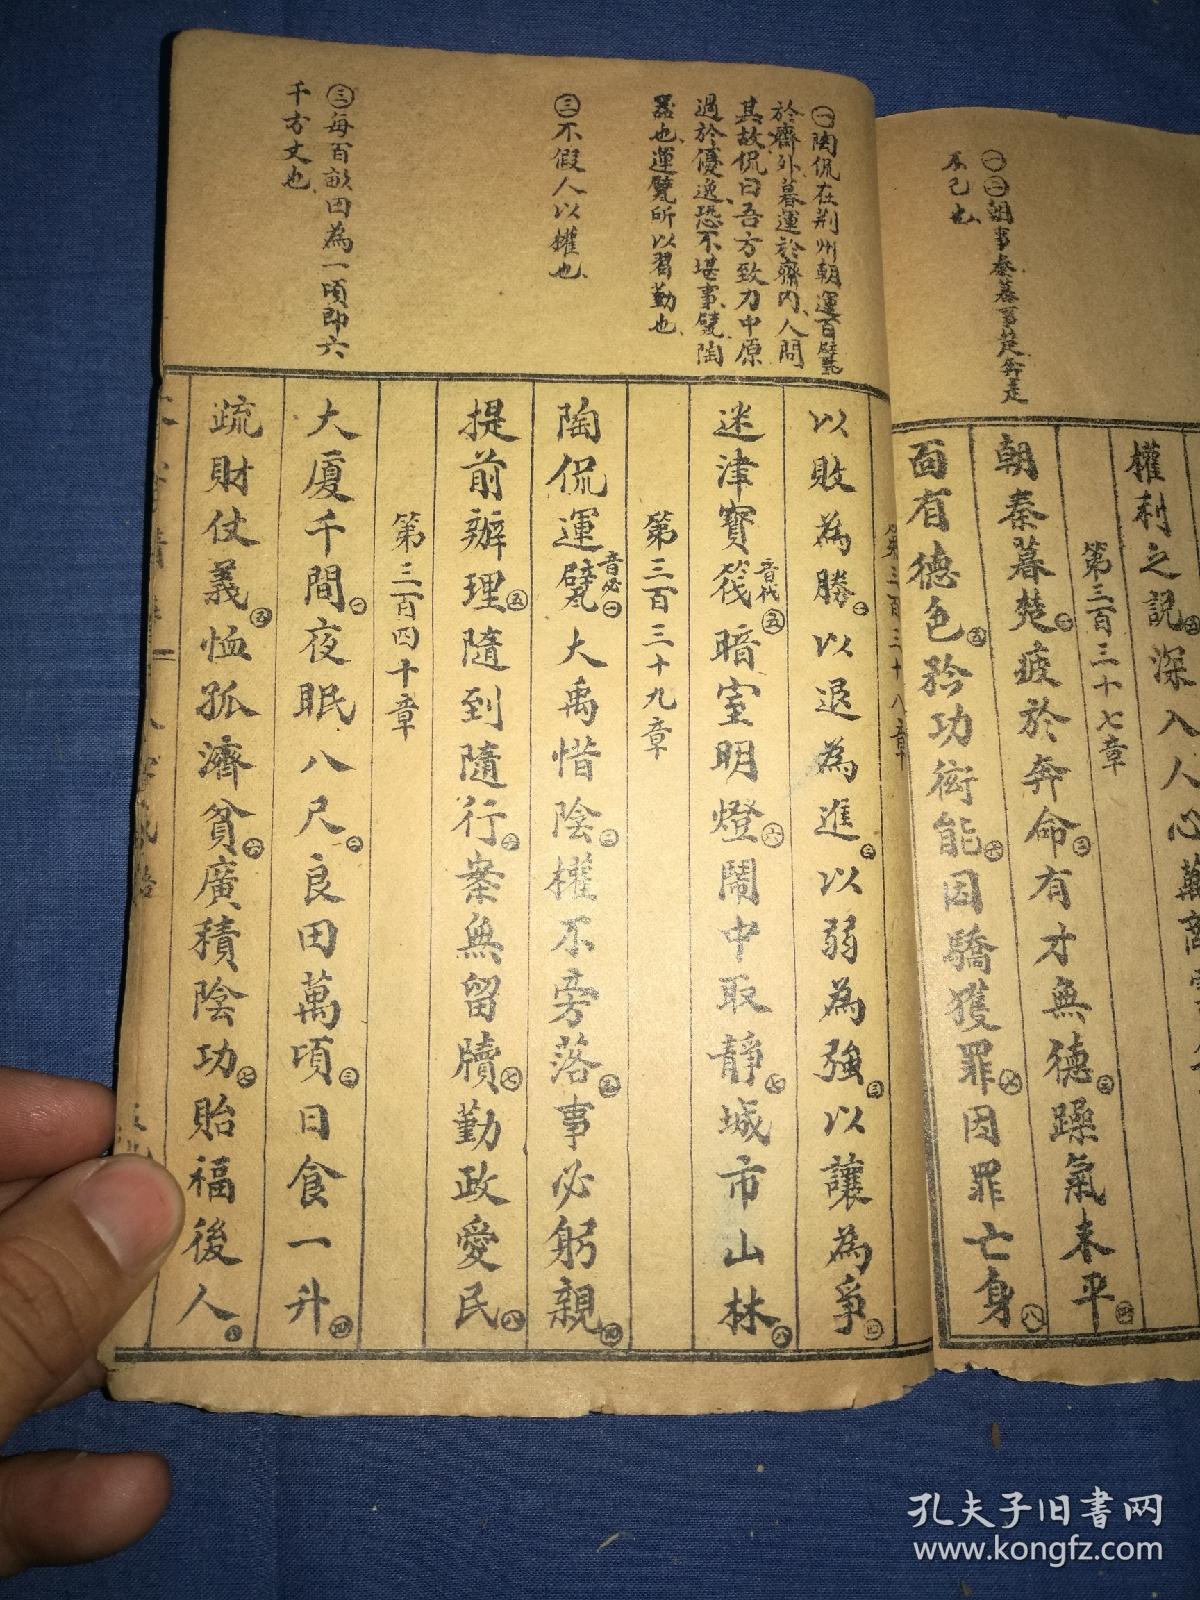 ㊀㊁朝事秦暮事楚奔走
不已也
權利之説㊃深入人心
第三百三十七章
朝秦暮楚㊀疲於奔命㊁有才無德㊂躁氣未平㊃
面有德色㊄矜功衒能㊅因驕獲罪㊆因罪亡身㊇
㊀陶侃在荆州朝運百甓
於齋外暮運於齋内人問
其故侃曰吾方致力中原
過於優逸恐不堪事甓陶
器也運甓所以習勤也
㊂不假人以權也
㊂每百畝田為一頃即六
千方丈也
第三百三十八章
以敗為勝㊀以退為進㊁以弱為強㊂以讓為爭㊃
迷津寶筏音伐㊄暗室明燈㊅鬧中取靜㊆城市山林㊇
第三百三十九章
陶侃運甓音必㊀大禹惜陰㊁權不旁落㊂事必躬親㊃
提前辦理㊄隨到隨行㊅案無留牘㊆勤政愛民㊇
第三百四十章
大廈千間㊀夜眠八尺㊁良田萬頃㊂日食一升㊃
疏財仗義㊄恤孤濟貧㊅廣積陰功㊆貽福後人㊇
孔夫子旧書网
www.kongfz.com